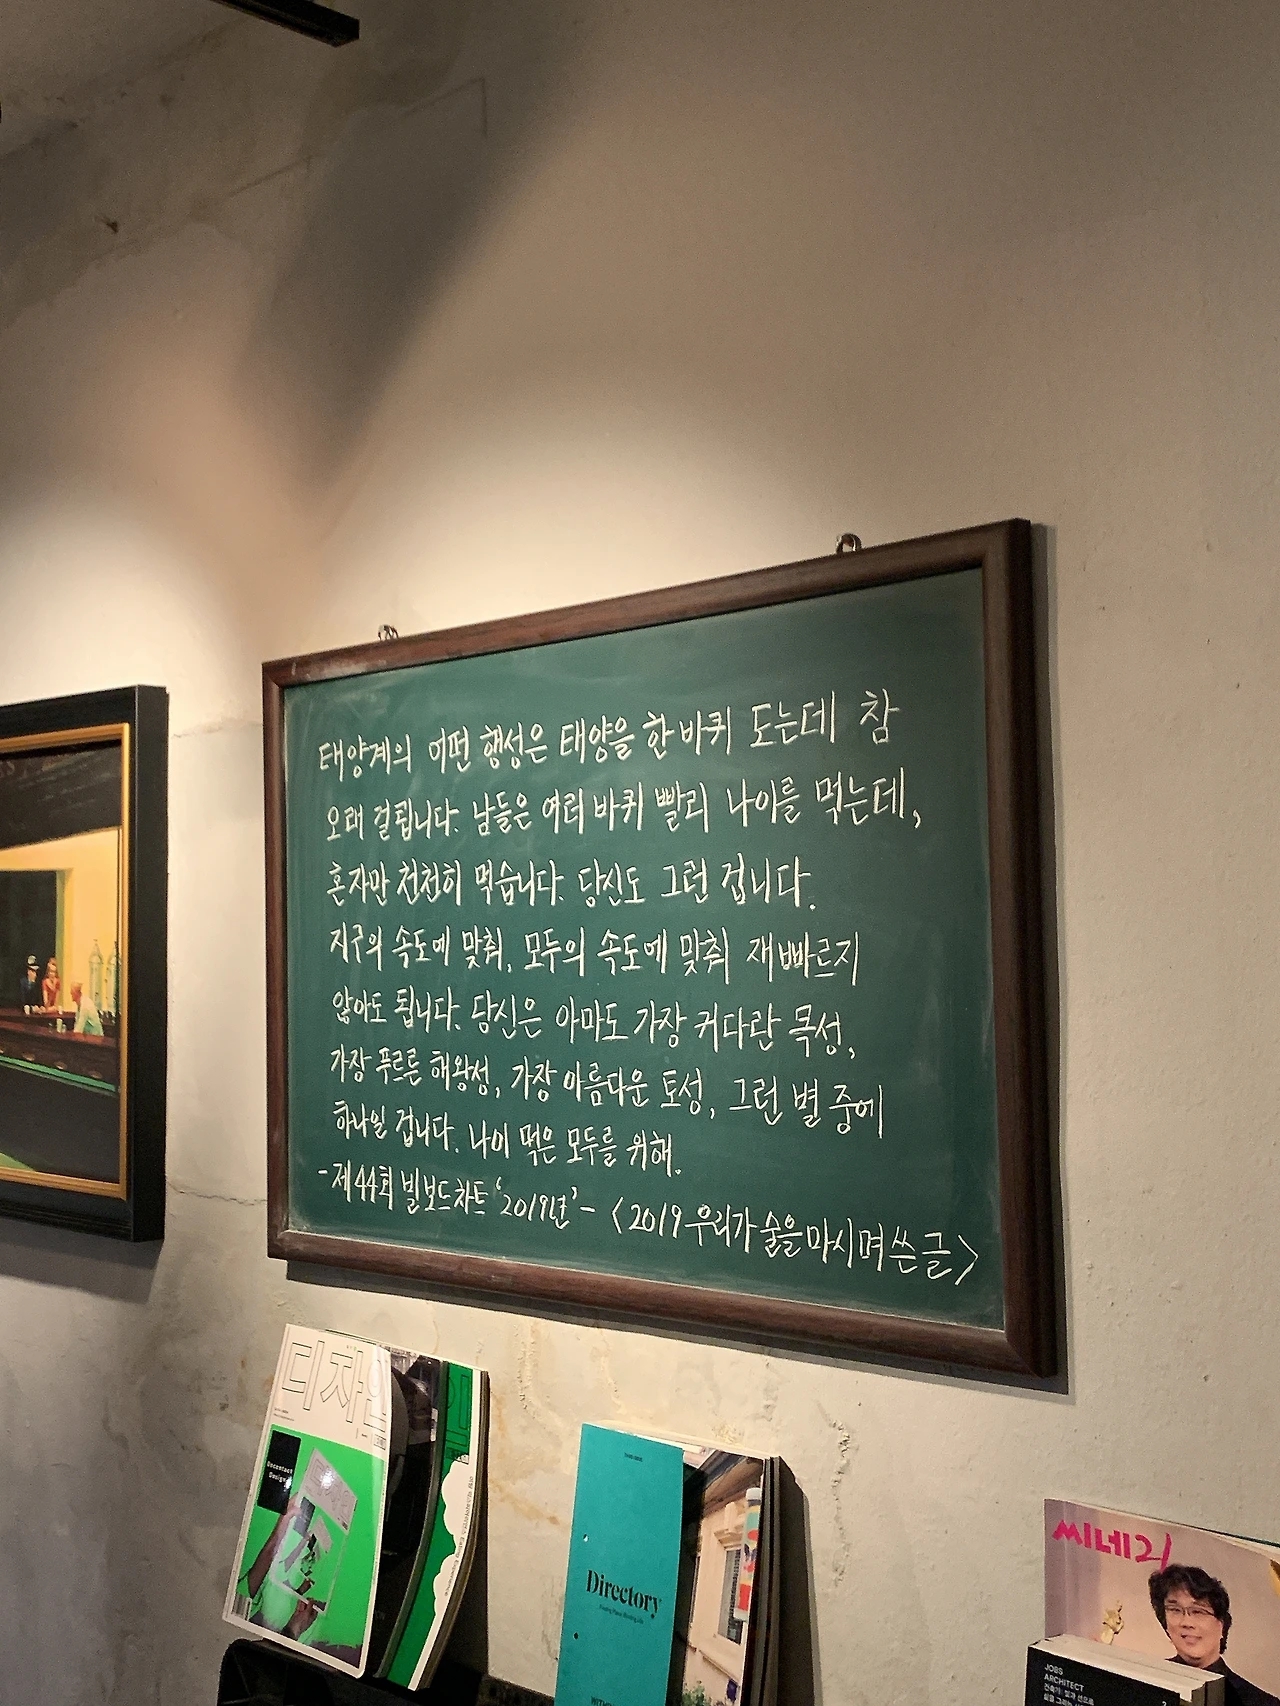 태양계의 어떤 행성은 태양을 한 바퀴 도는데 참
오래 걸립니다. 남들은 여러 바퀴 빨리 나이를 먹는데,
혼자만 천천히 먹습니다. 당신도 그런 겁니다.
지구의 속도에 맞춰, 모두의 속도에 맞춰 재빠르지
않아도 됩니다. 당신은 아마도 가장 커다란 목성,
가장 푸르른 해왕성, 가장 아름다운 토성, 그런 별 중에
하나일 겁니다. 나이 먹은 모두를 위해.
-제44회 빌보드차트 '2019년'- <2019 우리가 술을 마시며 쓴 글>
디자인
Uncontact
Design
Directory
씨네21
JOBS
ARCHITECT